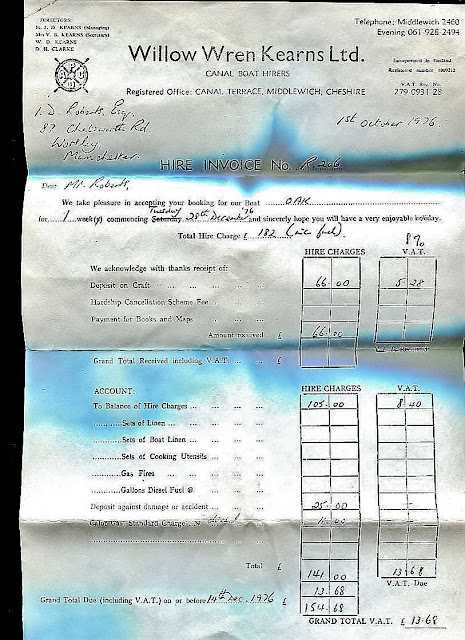 DIRECTORS:
R. J. D. KEARNS (Managing)
Mrs V. B. KEARNS (Secretary)
W. D. KEARNS
D. H. CLARKE
Telephone: Middlewich 2460
Evening 061-928-2494
Willow Wren Kearns Ltd.
CANAL BOAT HIRERS
Incorporated in England
Registered number
Registered Office: CANAL TERRACE, MIDDLEWICH, CHESHIRE
V.A.T. Reg. No.
279 0931 28
I. D. Roberts, Esq.
87 Chatsworth Rd.
Worsley
Manchester.
1st October 1976.
HIRE INVOICE No. R.206
Dear Mr. Roberts,
We take pleasure in accepting your booking for our Boat OAK
Tuesday '76
for 1 week(s) commencing Saturday 28th December and sincerely hope you will have a very enjoyable holiday.
Total Hire Charge £ 182 (inc fuel).
8%
HIRE CHARGES V.A.T.
We acknowledge with thanks receipt of:
Deposit on Craft 66.00 5.28
Hardship Cancellation Scheme Fee
Payment for Books and Maps
Amount received £ 66.00
Grand Total Received including V.A.T. £
ACCOUNT: HIRE CHARGES V.A.T.
To Balance of Hire Charges 105.00 8.40
Sets of Linen
Sets of Boat Linen
Sets of Cooking Utensils
Gas Fires
Gallons Diesel Fuel @
Deposit against damage or accident 25.00
Calor Gas Standard Charge
Total £ 141 00 13.68
V.A.T. Due
13.68
Grand Total Due (including V.A.T.) on or before 14th Dec. 1976 £ 154.68
GRAND TOTAL V.A.T. £ 13.68